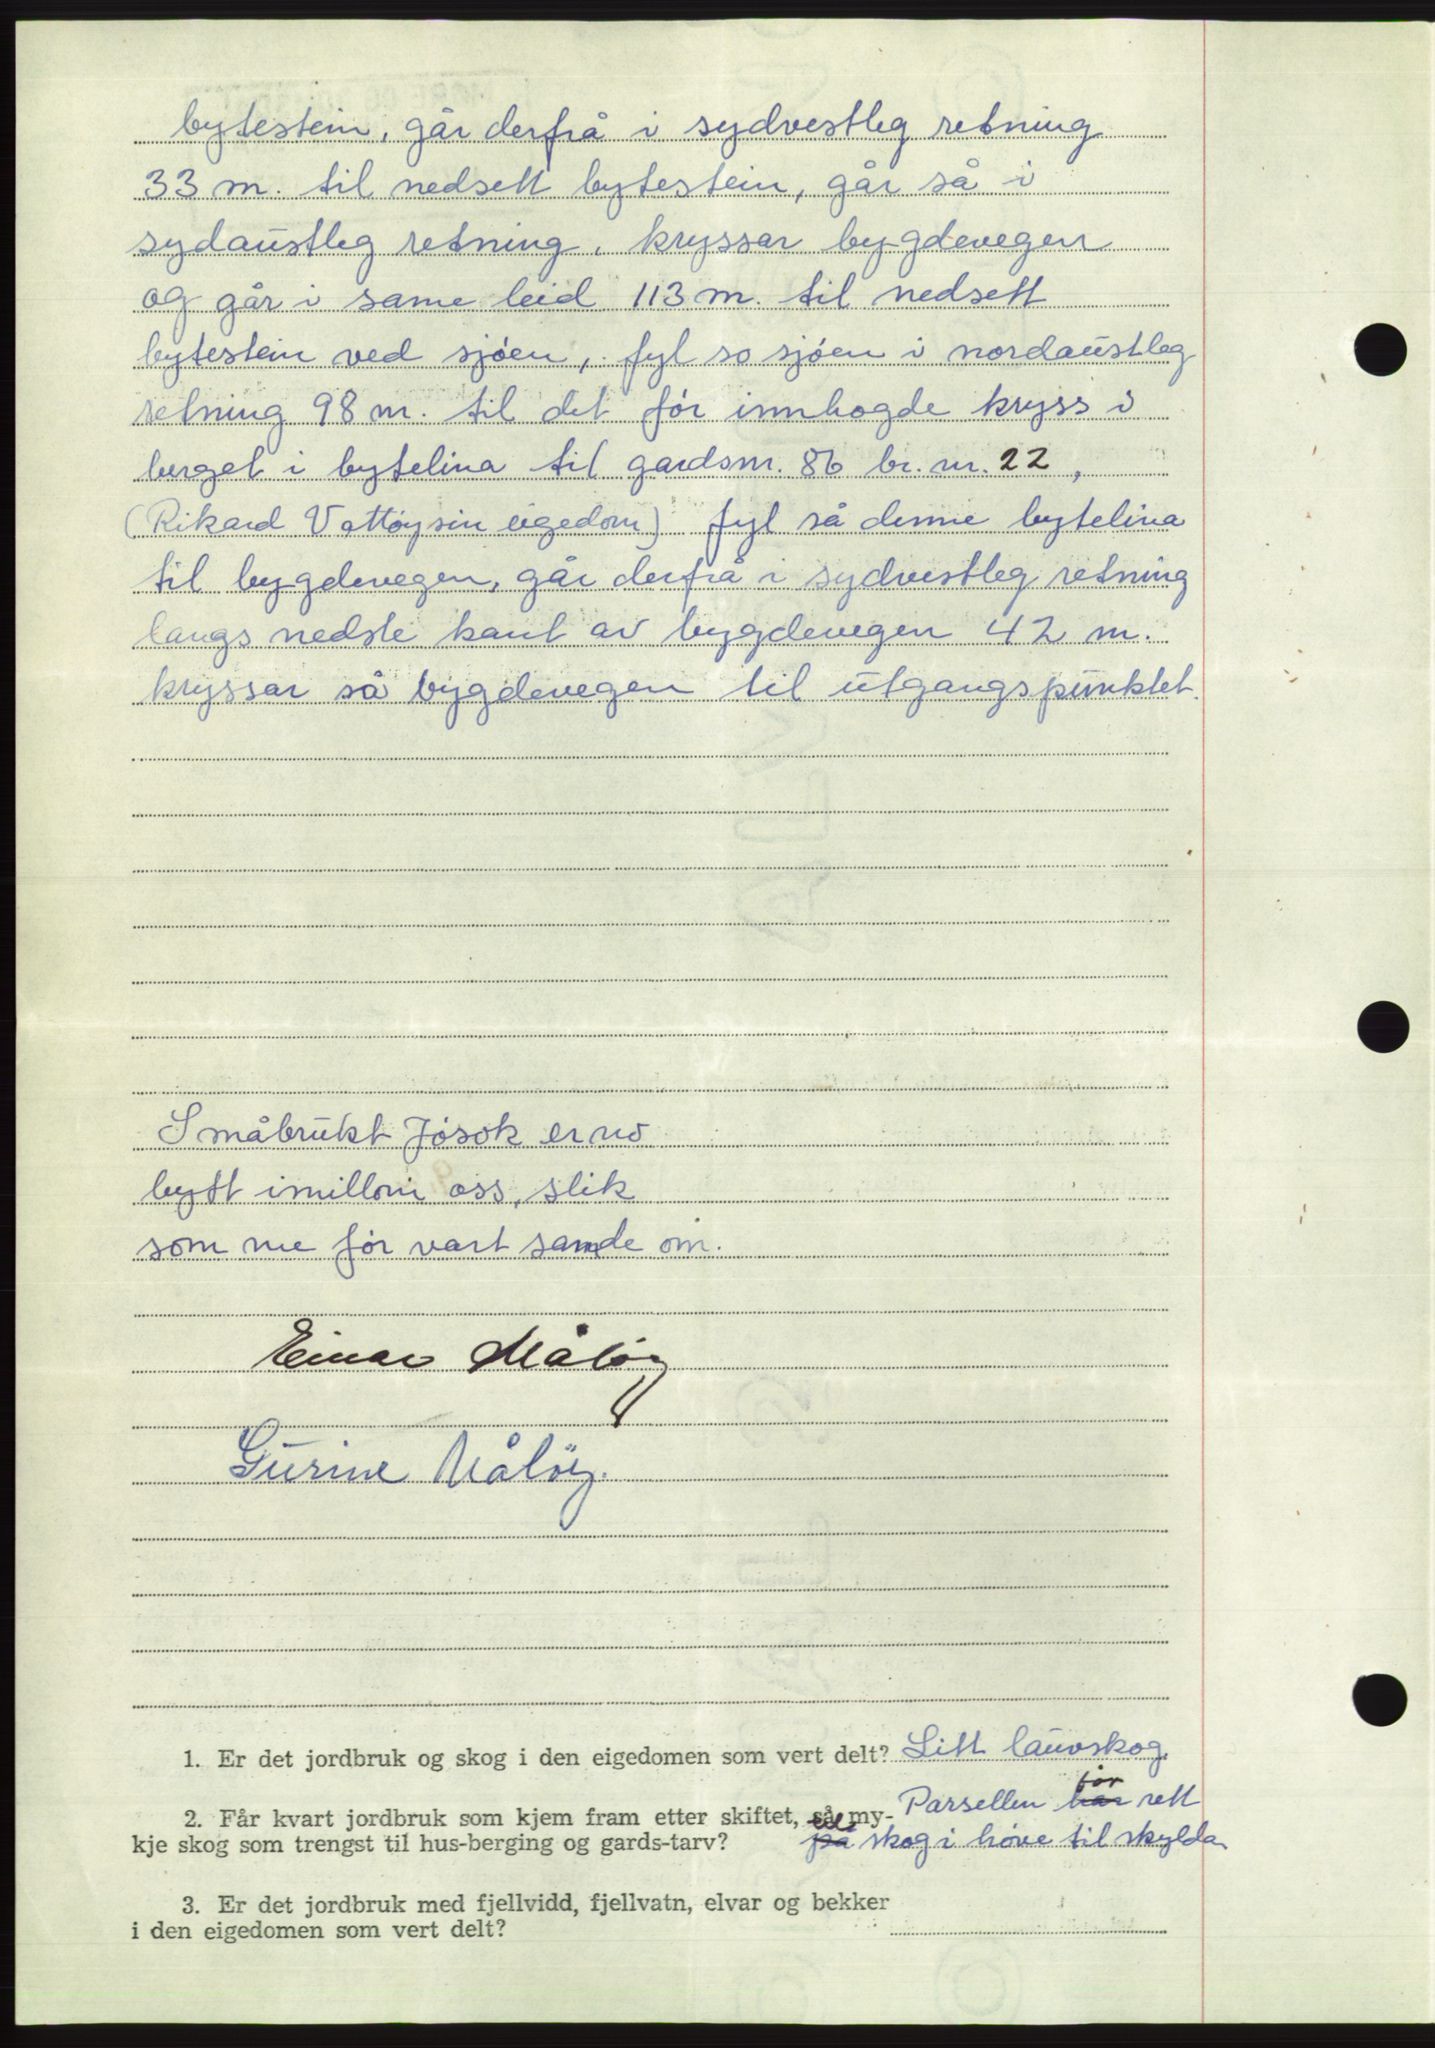 bytestein, går derfrå i sydvestleg retning
33 m. til nedsett bytestein, går så i
sydaustleg retning, kryssar bygdevegen
og går i same leid 113 m. til nedsett
bytestein ved sjøen, fyl so sjøen i nordaustleg
retning 98 m. til det før innhogde kryss i
berget i bytelina til gardsnr. 86 br. nr. 22,
(Rikard Vattøy sin eigedom) fyl så denne bytelina
til bygdevegen, går derfrå i sydvestleg retning
langs nedste kant av bygdevegen 42 m.
kryssar så bygdevegen til utgangspunktet.
Småbrukt Jøsok er no
bytt imillom oss, slik
som me før vart samde om.
Einar Måløy
Gurine Måløy.
1. Er det jordbruk og skog i den eigedomen som vert delt? Litt lauvskog.
2. Får kvart jordbruk som kjem fram etter skiftet, så my- Parsellen har får rett
kje skog som trengst til hus-berging og gards-tarv? på til skog i høve til skylda
3. Er det jordbruk med fjellvidd, fjellvatn, elvar og bekker
i den eigedomen som vert delt?